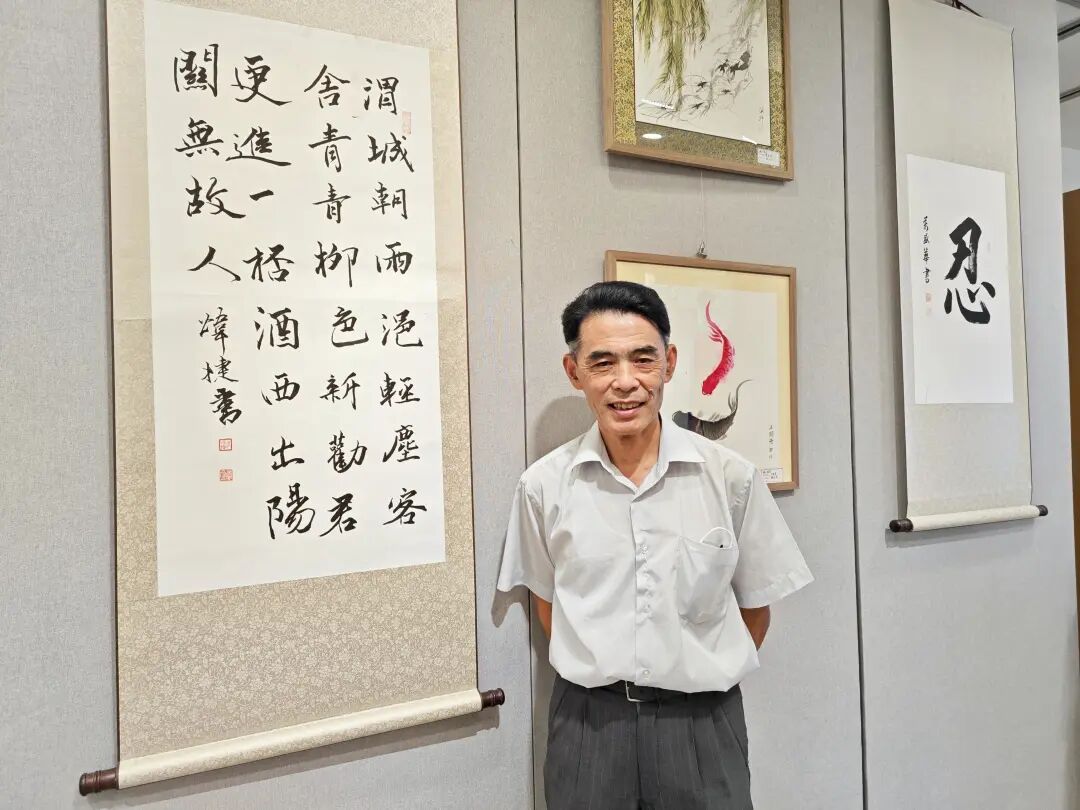 渭城朝雨浥輕塵客
舍青青柳色新勸君
更進一桮酒西出陽
關無故人
煒捷書
忍
華書